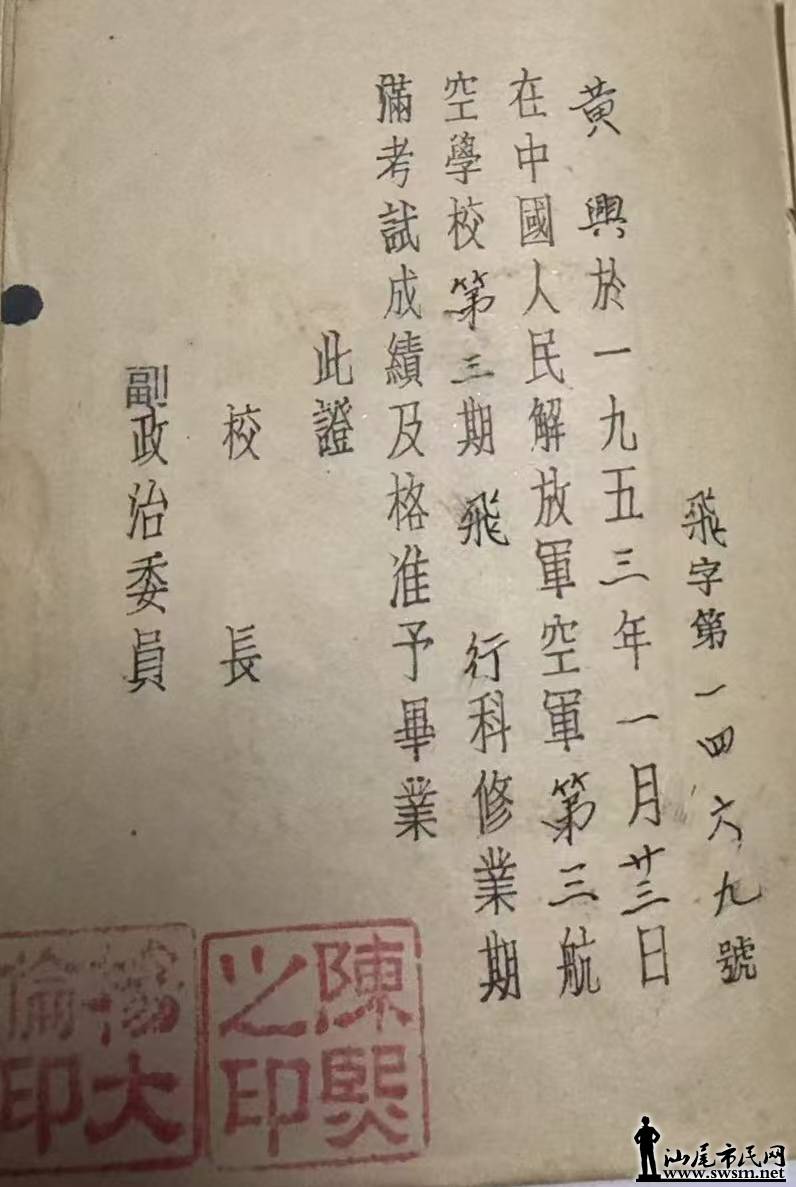 飛字第一四六九號
黃興於一九五三年一月廿三日
在中國人民解放軍空軍第三航
空學校第三期飛行科修業期
滿考試成績及格准予畢業
此證
校長
副政治委員
陳熙之印
楊大倫印
汕尾市民网
www.swsm.net